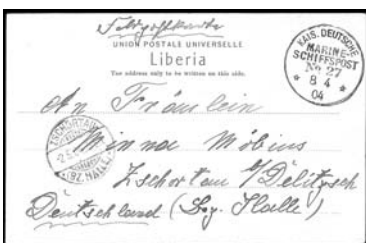 Feldpostkarte
UNION POSTALE UNIVERSELLE
Liberia
The address only to be written on this side.
KAIS. DEUTSCHE
MARINE-
SCHIFFSPOST
No 27
8 4
04
An Fräulein
ZSCHORTAU
(BZ. HALLE)
Minna Möbius
Zschortau b/Delitzsch
Deutschland (Bez. Halle)